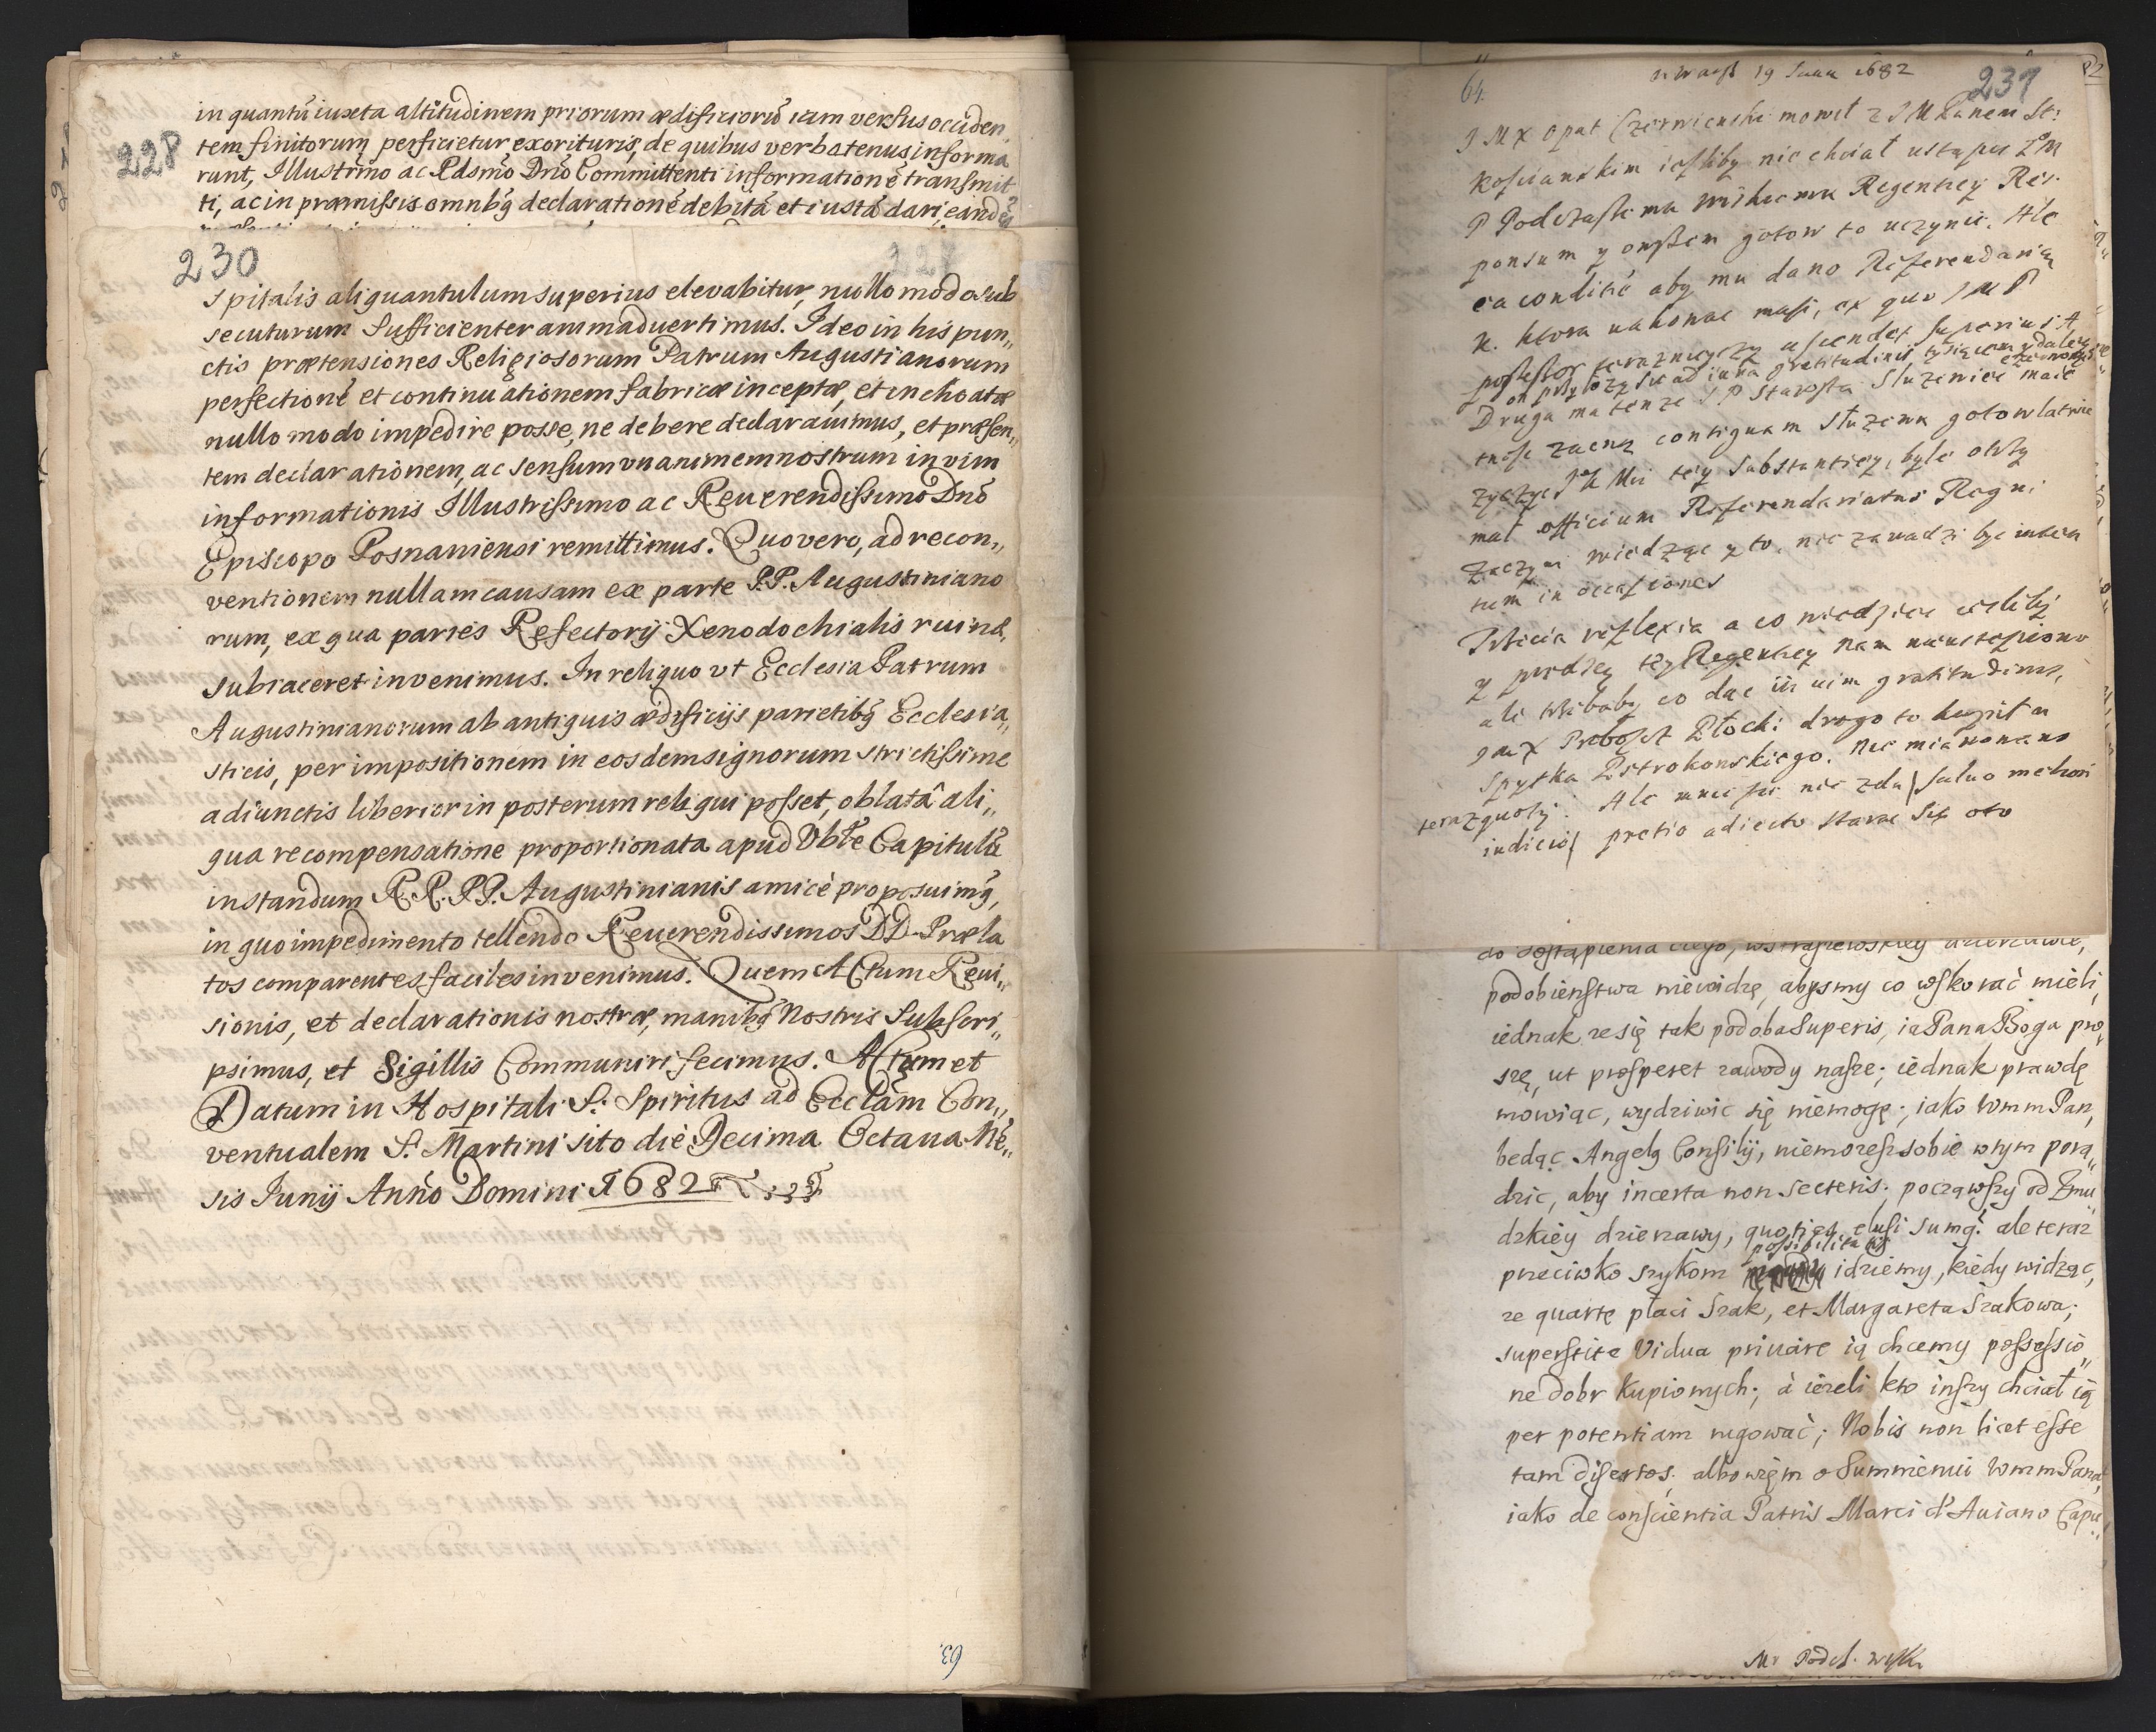 228
in quantũ iuxta altitudinem priorum ædificiorũ iam versus occiden
tem finitorum perficietur exorituris, de quibus verbotenus informa
runt, Illustrimo ac Rdsmo Dno Committenti informationẽ transmit
ti, ac in præmissis omnbg declarationẽ debitã et iustã dari, eandẽ
230
spitalis aliquantulum superius elevabitur, nullo modo sub
secuturum sufficienter animaduertimus. Ideo in his pun„
ctis prætensiones Religiosorum Patrum Augustianorum
perfectionẽ et continuationem fabricæ inceptæ, et inchoatæ
nullo modo impedire posse, ne debere declarauimus, et præsen„
tem declarationem, ac sensum vnanimem nostrum in vim
informationis Illustrissimo ac Reuerendissimo Dnõ
Episcopo Posnaniensi remittimus. Quo vero, ad recon„
ventionem nullam causam ex parte P.P. Augustiniano
rum, ex qua paries Refectorij Xenodochialis ruinæ
subiaceret invenimus. In reliquo vt Ecclesia Patrum
Augustinianorum ab antiquis ædificijs parietibg Ecclesia„
sticis, per impositionem in eosdem signorum strictissime
adiunctis liberior in posterum reliqui posset, oblatâ ali„
qua recompensatione proportionata apud Vble Capitulũ
instandum R.R.P.P. Augustinianis amicè proposuimg,
in quo impedimento tollendo Reuerendissimos DD. Præla
tos comparentes faciles invenimus. Quem Actum Reui„
sionis, et declarationis nostræ, manibg Nostris Subscri„
psimus, et Sigillis Communiri fecimus. Actum et
Datum in Hospitali S: Spiritus ad Ecclãm Con„
ventualem S. Martini sito die Decima Octaua Mẽ„
sis Junij Anño Domini 1682
63.
64.
19 Junii 1682
237
82
J M X Opat Czerwienski mowił z J M Panem St:
Kosciańskim iesliby nie chciał ustąpić
P Podczaszemu Regenhey Res.
ponsum y owszem gotow to uczynic. Ale
ea conditie aby mu dano Referendariam
K. ktora wakowac musi, ex quo J M P
possessor terazniejszy ascendet superius. A
Druga ma tenze J P Starosta
contiguam gotow łatwie
zyczyc tey Substantiey, byle otrzy
mał officium Referendariatus Regni
zaczym wiedząc y to, nie zawadzi byc inten
tum in occasiones
reflexia a co wiedziec iesliby
y prędzey tey Regenhey nam nie ustąpiono
ale trzebaby co dac in vim gratitudinis,
gdy X Probosct Płocki drogo to kupił u
Spytka Pstrokonskiego. Nec mianowano
teraz quoty: Ale mnie sie nie zda / saluo meliori
iudicio / pretio adiecto starac się oto
podobienstwa niewidzę, abysmy co wskorać mieli,
iednak ze się tak podoba Superis, ia Pana Boga pro„
szę, ut prosperet zawody nasze; iednak prawdę
mowiąc, wydziwic się niemogę; iako Wmm Pan,
bedąc Angelg Consilij, niemozesz sobie w tym pora„
dzic, aby incerta non secteris; począwszy od Zmu„
dzkiey dzierzawy, quoties elusi sumg? ale teraz
possibilitatis
przeciwko szykom idziemy, kiedy widząc,
ze quartę płaci Szak, et Margareta Szakowa;
superstite Vidua priuare ią chcemy possessio„
ne dobr kupionych; à iezeli kto inszy chciał ią
per potentiam rugować; Nobis non licet esse
tam disertos; albowięm o Summieniu Wmm Pana,
iako de conscientia Patris Marci d'Auiano Capu„
Mr Podcz.